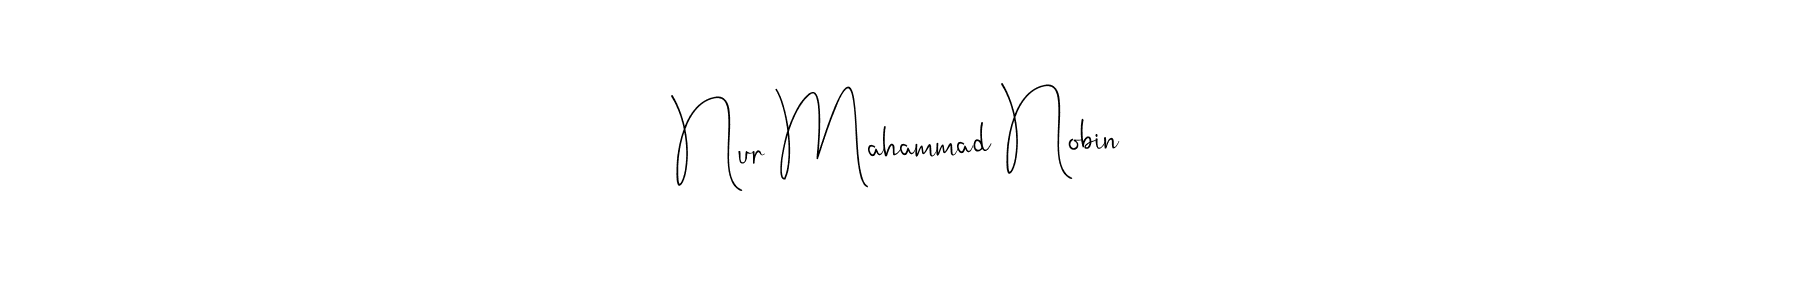 Nur Mahammad Nobin